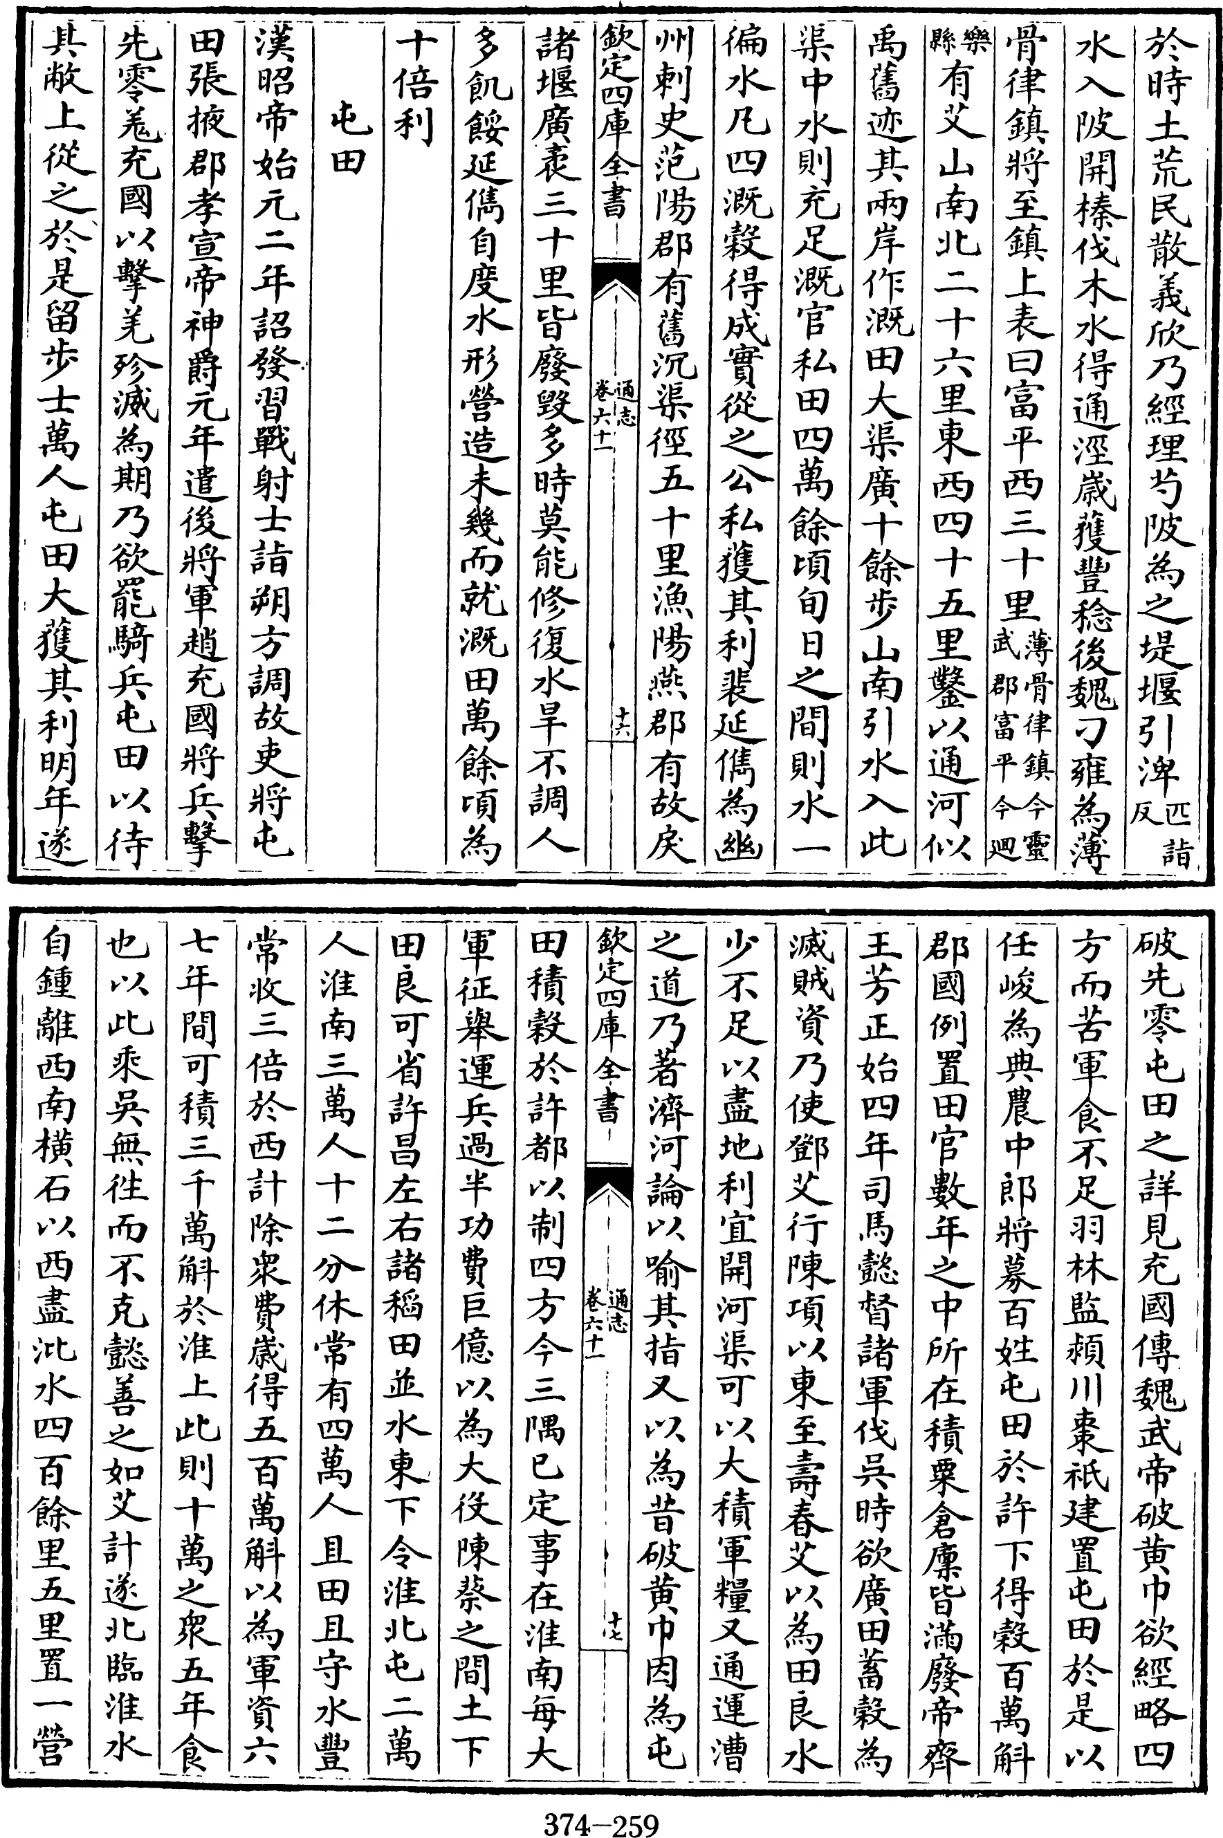 於時土荒民散義欣乃經理芍陂為之堤堰引渒匹詣反
水入陂開榛伐木水得通涇嵗獲豐稔後魏刁雍為薄
骨律鎮將至鎮上表曰富平西三十里薄骨律鎮今靈武郡富平今迴
樂縣有艾山南北二十六里東西四十五里鑿以通河似
禹舊迹其兩岸作溉田大渠廣十餘步山南引水入此
渠中水則充足溉官私田四萬餘頃旬日之間則水一
徧水凡四溉穀得成實從之公私獲其利裴延儁為幽
州刺史范陽郡有舊沉渠徑五十里漁陽燕郡有故戾
欽定四庫全書
通志
卷六十一
十六
諸堰廣袤三十里皆廢毀多時莫能修復水旱不調人
多飢餒延儁自度水形營造未幾而就溉田萬餘頃為
十倍利
屯田
漢昭帝始元二年詔發習戰射士詣朔方調故吏將屯
田張掖郡孝宣帝神爵元年遣後將軍趙充國將兵擊
先零羗充國以擊羌殄滅為期乃欲罷騎兵屯田以待
其敝上從之於是留步士萬人屯田大獲其利明年遂
破先零屯田之詳見充國傳魏武帝破黄巾欲經略四
方而苦軍食不足羽林監潁川棗祇建置屯田於是以
任峻為典農中郎將募百姓屯田於許下得穀百萬斛
郡國例置田官數年之中所在積粟倉廩皆滿廢帝齊
王芳正始四年司馬懿督諸軍伐吳時欲廣田蓄穀為
滅賊資乃使鄧艾行陳項以東至壽春艾以為田良水
少不足以盡地利宜開河渠可以大積軍糧又通運漕
之道乃著濟河論以喻其指又以為昔破黄巾因為屯
欽定四庫全書
通志
卷六十一
十七
田積穀於許都以制四方今三隅已定事在淮南每大
軍征舉運兵過半功費巨億以為大役陳蔡之間土下
田良可省許昌左右諸稻田並水東下令淮北屯二萬
人淮南三萬人十二分休常有四萬人且田且守水豐
常收三倍於西計除衆費嵗得五百萬斛以為軍資六
七年間可積三千萬斛於淮上此則十萬之衆五年食
也以此乘吳無徃而不克懿善之如艾計遂北臨淮水
自鍾離西南横石以西盡沘水四百餘里五里置一營
374-259